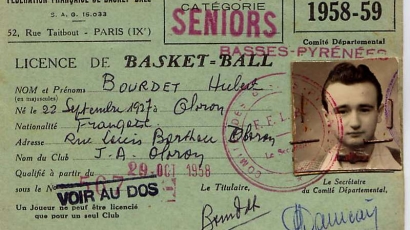 FÉDÉRATION FRANÇAISE DE BASKET-BALL
S. A. G. 15.033
52, Rue Taitbout - PARIS (IX°)
CATÉGORIE
SENIORS
1958-59
Comité Départemental
BASSES-PYRÉNÉES
LICENCE DE BASKET-BALL
NOM et Prénoms BOURDET Hubert
(en majuscules)
Né le 22 Septembre 1937 à Oloron
Nationalité Française
Adresse Rue Louis Barthou Oloron
Nom du Club J.A. Oloron
Qualifié à partir du 29 OCT 1958
sous le No
VOIR AU DOS
Un Joueur ne peut être licencié
que pour un seul Club
Le Titulaire,
Le Secrétaire
du Comité Départemental,